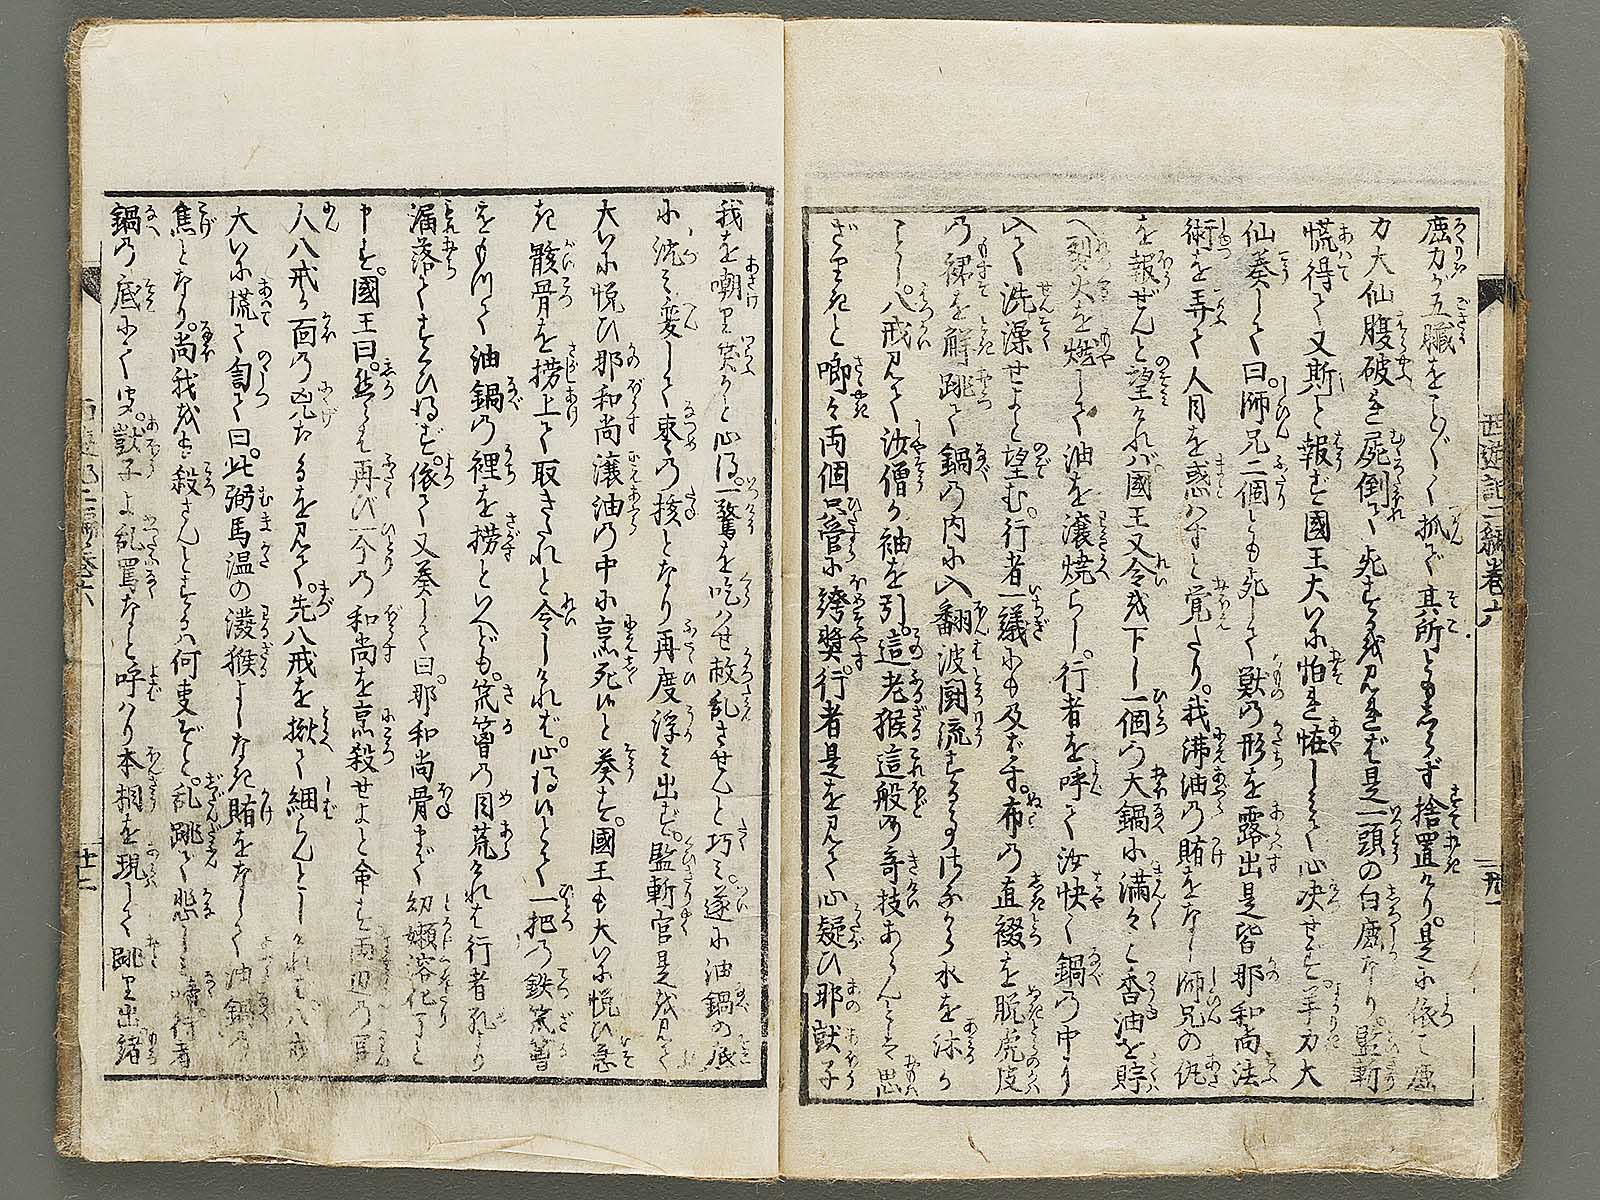 鹿力が五臓をことごとく抓で其所ともしらず捨置けり。是に依て鹿
力大仙腹破れ屍倒て死するを見れば是一頭の白鹿なり。監斬
慌得て又斯と報ず國王大いに怕れ怪しみて心决せず。羊力大
仙奏して曰。師兄二個とも死して獣の形を露出是皆那和尚法
術を弄て人目を惑はすと覚たり。我沸油の賭をなし師兄の仇
を報ぜんと望ければ國王又令を下し一個の大鍋に満々と香油を貯
へ烈火を燃して油を滾焼らし。行者を呼て汝快く鍋の中に
入て洗澡せよと望む。行者一議にも及ばず。布の直綴を脱虎皮
の裙を解跳て鍋の内に入翻波鬪流するは水を沐が
ことし。八戒見て沙僧が袖を引。這老猴這般の竒技あらんとは思
ざりきと喞々両個只管に誇奨。行者是を見て心疑ひ那獃子
我を嘲り笑ふと心得。一驚を吃はせ赦乱させんと巧み。遂に油鍋の底
に沈み変じて棗の核となり再度浮み出ず。監斬官是を見て
大いに悦ひ那和尚滾油の中に烹死ぬと奏す。國王も大いに悦ひ急
ぎ骸骨を撈上て取きたれと令しければ。心得ぬとて一把の鉄笊籬
をもつて油鍋の裡を撈といへども。笊籬の目荒ければ行者孔より
漏落てすくひ得ず。依て又奏して曰。那和尚骨まで幼嫩溶化たりと
申す。國王曰。然らば再び一个の和尚を烹殺せよと命ず両辺の官
人八戒が面の凶がたるを見て。先八戒を揪て細らんとしければ八戒
大いに慌て訇て曰。此弼馬温の潑猴よしなき賭をなして油鍋の
焦となり。尚我をも殺さんとするは何事ぞと。乱跳て悲しみ啼行者
鍋の底にて聞。獃子よ乱罵なと呼はり本相を現して跳り出諸
西遊記二編巻六